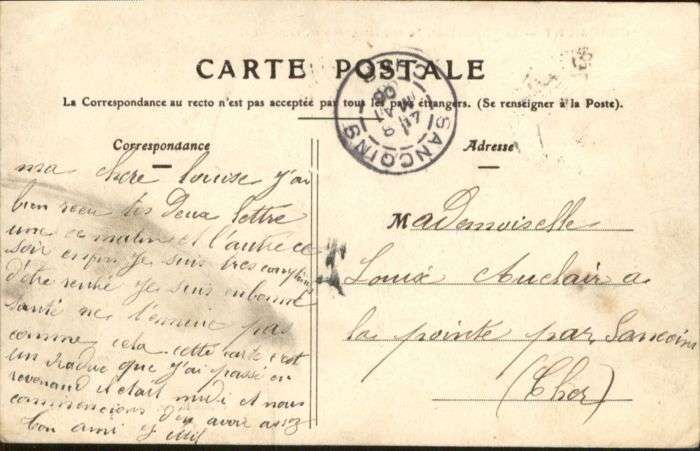 CARTE POSTALE
La Correspondance au recto n'est pas acceptée par tous les pays étrangers. (Se renseigner à la Poste).
SANCOINS
CHER
Correspondance
Adresse
ma chere louise j'ai
bien recu tes Deux lettre
une ce matin et l'autre ce
soir enfin je suis tres
d'être rentré je suis en bonne
santé ne t'ennuie pas
comme cela cette carte c'est
un que j'ai passé en
revenand il était midi et nous
commencions d'en avoir assez
ton ami
Mademoiselle
Auclair a
la pointe par Sancoins
(Cher)